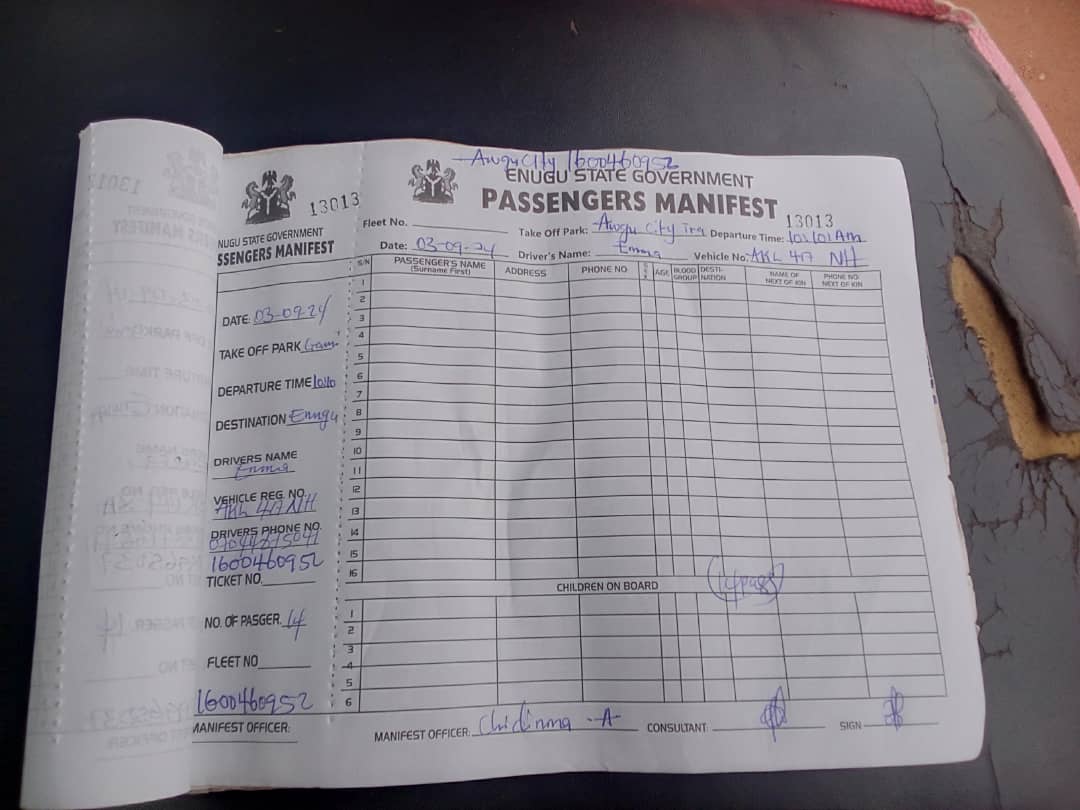 13013
NUGU STATE GOVERNMENT
SSENGERS MANIFEST
DATE: 03-09-24
TAKE OFF PARK
DEPARTURE TIME
DESTINATION Enugu
DRIVERS NAME
Emma
VEHICLE REG. NO.
AKL 417 NH
DRIVERS PHONE NO.
1600460952
TICKET NO.
NO. OF PASGER. 14
FLEET NO
1600460952
MANIFEST OFFICER:
Awgu City 1600460952
ENUGU STATE GOVERNMENT
PASSENGERS MANIFEST
13013
Fleet No. Take Off Park: Awgu City Departure Time:
Date: 03-09-24 Driver's Name: Emma Vehicle No: AKL 417 NH
S/N PASSENGER'S NAME (Surname First) ADDRESS PHONE NO SEX AGE BLOOD GROUP DESTI-NATION NAME OF NEXT OF KIN PHONE NO. NEXT OF KIN
1
2
3
4
5
6
7
8
9
10
11
12
13
14
15
16
CHILDREN ON BOARD
1
2
3
4
5
6
MANIFEST OFFICER: Chidinma -A- CONSULTANT: SIGN